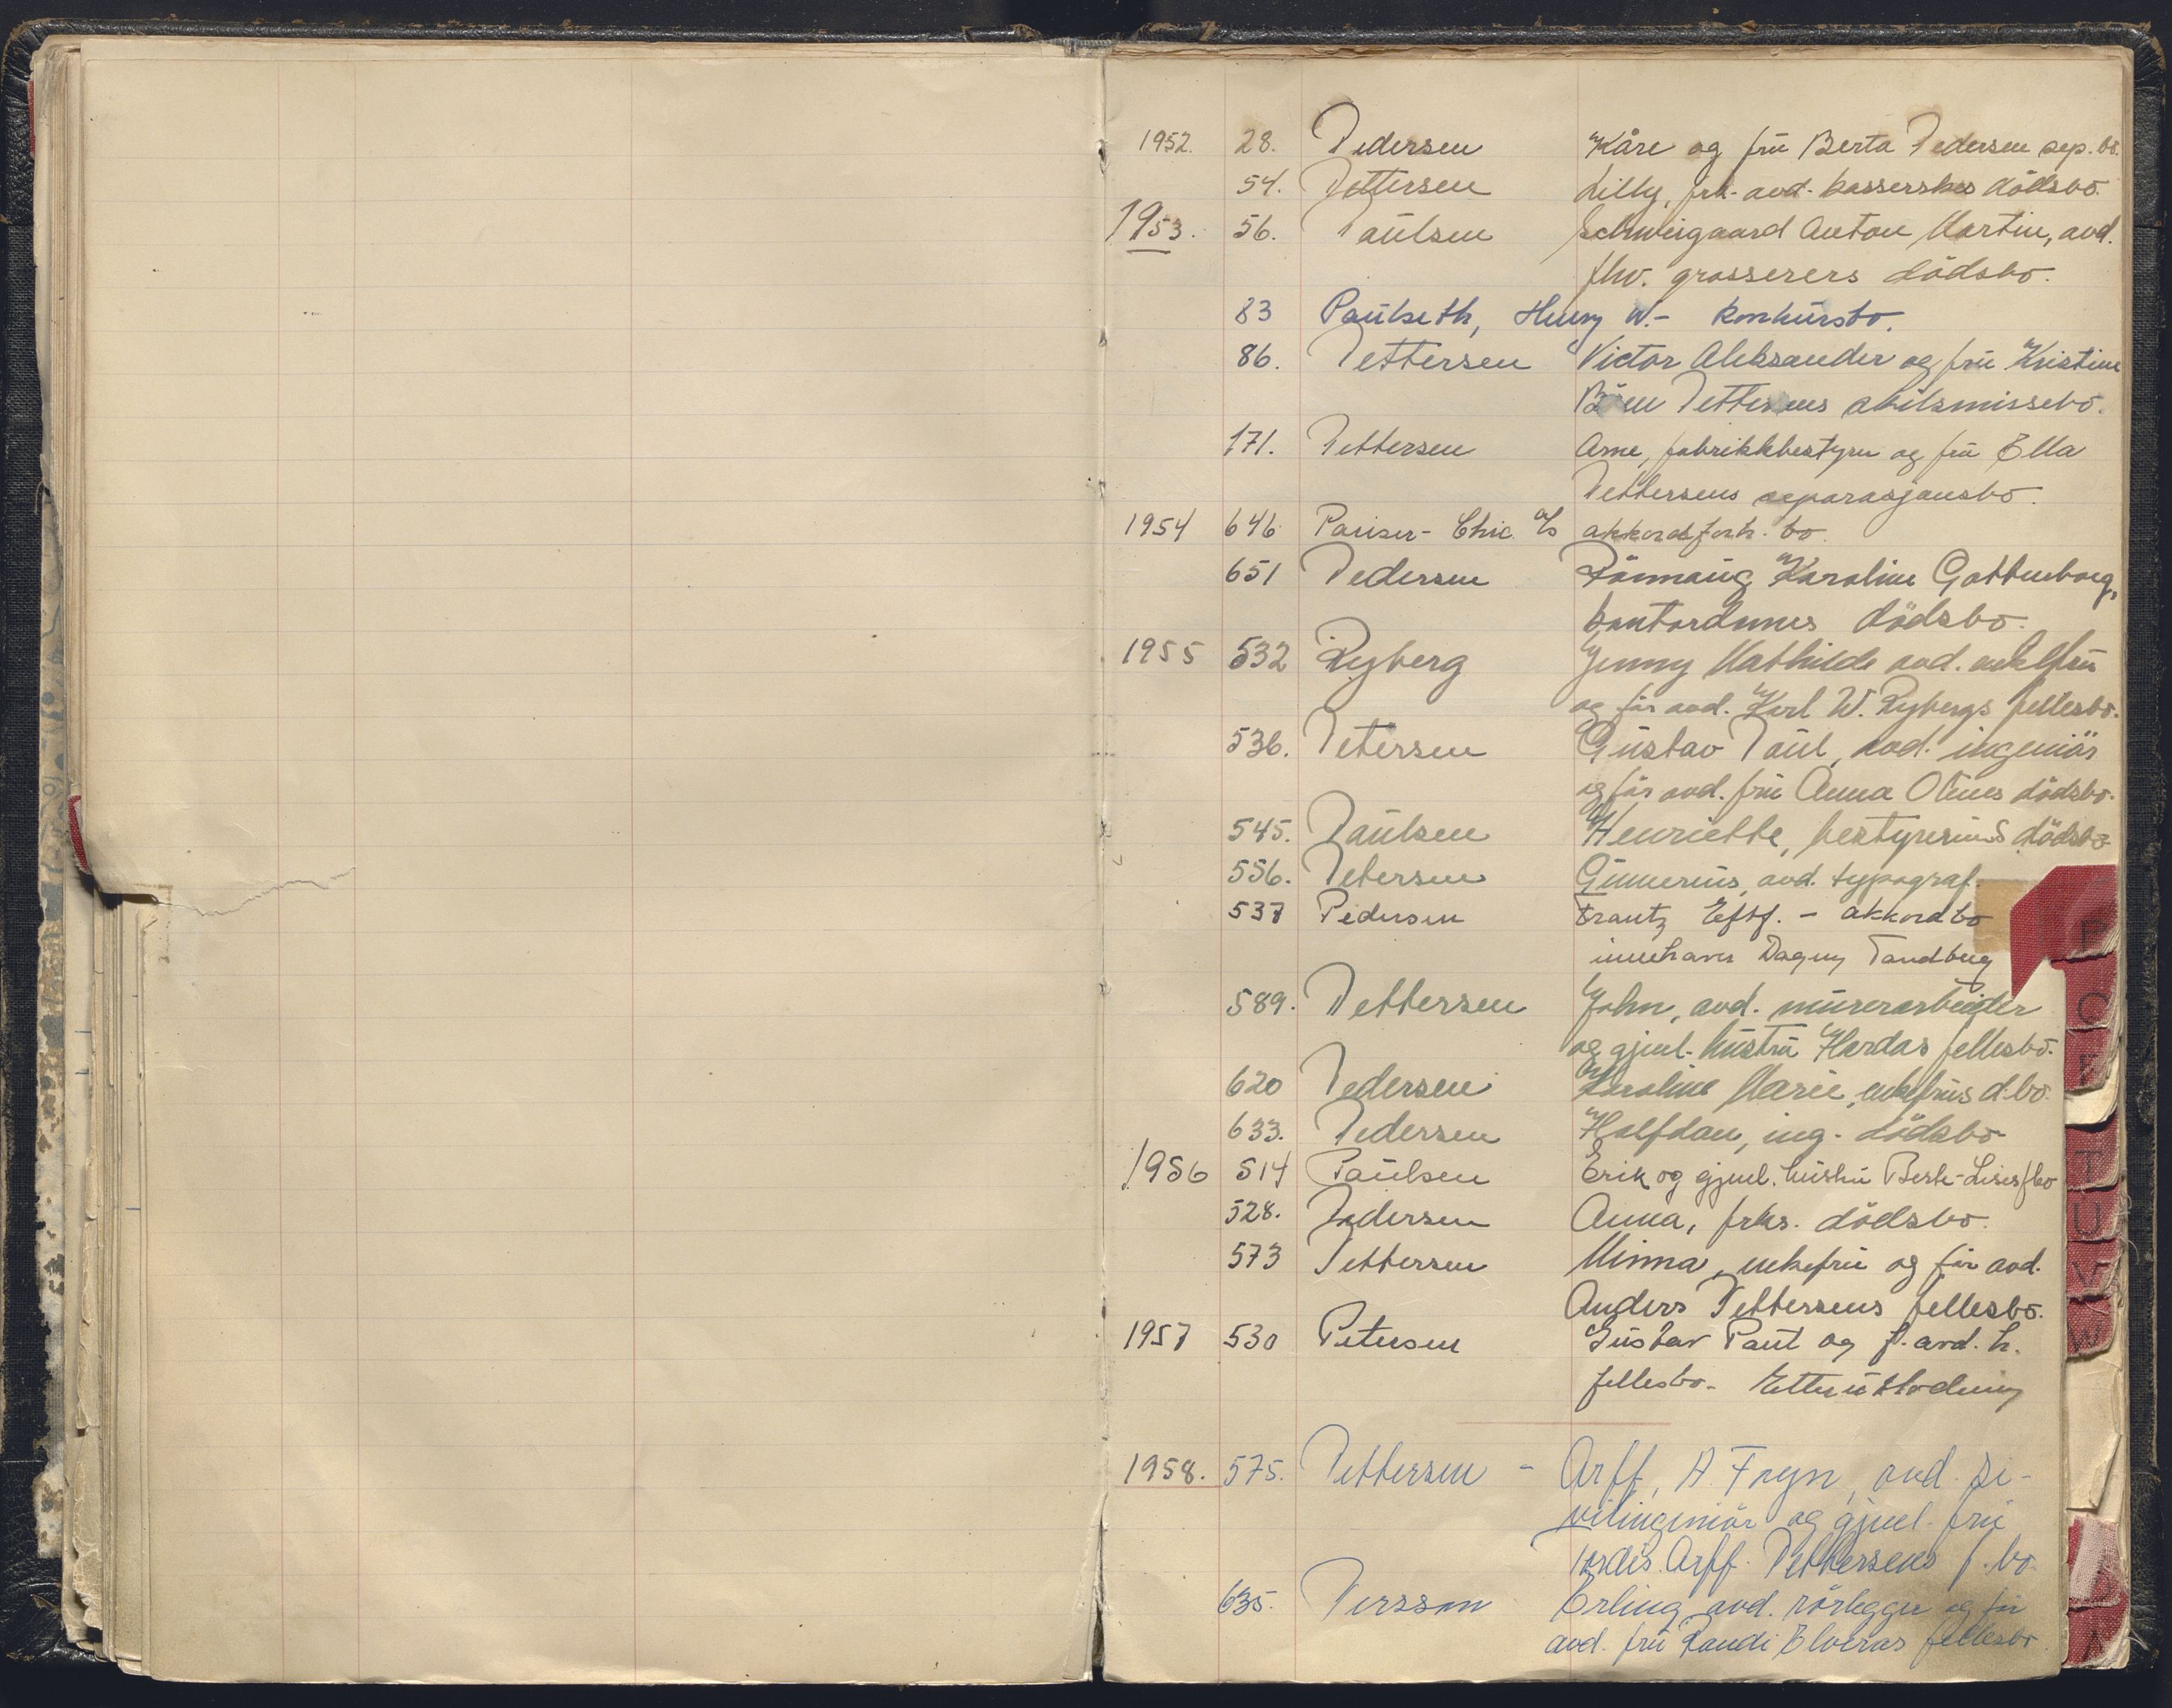 1952. 28. Pedersen Kåre og frü Berta Pedersen sep.bo.
54. Pettersen Lilly, frk. avd. kasserskes dödsbo.
1953. 56. Paülsen Schweigaard Anton Martin, avd.
fhv. grosserers dödsbo.
83 Paülseth, Henry W.- konkürsbo.
86. Pettersen Victor Aleksander og frü Kristine
Pettersens skilsmissebo.
171. Pettersen Arne, fabrikkbestyrer og frü Ella
Pettersens separasjonsbo.
1954 646 Pariser-Chic A/S akkordforh. bo.
651 Pedersen Rönnaüg Karoline Gottenborg,
kontordames dödsbo.
1955 532 Ryberg Jenny Mathilde avd. enkefrü
og för avd. Karl W. Rybergs fellesbo.
536. Petersen Güstav Paül, avd. ingeniör
og för avd. frü Anna Olines dödsbo.
545. Paülsen Henriette, bestyrerinnes dödsbo
556. Petersen Günnerius, avd. typograf.
537 Pedersen Frantz Eftf. - akkordbo
innehaver Dagny Tandberg
589. Pettersen John, avd. mürerarbeider
og gjenl. hüstrü Herdas fellesbo.
620 Pedersen Karoline Marie, enkefrüs d.bo.
633. Pedersen Halfdan, ing. dödsbo
1956 514 Paülsen Erik og gjenl. hüstrü Berte-Lises fbo
528. Pedersen Anna, frks. dödsbo.
573 Pettersen Minna, enkefrü og för avd.
Anders Pettersens fellesbo.
1957 530 Petersen Güstav Paul og f. avd. h.
fellesbo. Etterütlodning
1958. 575. Pettersen - Arff, A. Fryn, avd. si-
vilingeniör og gjenl. frü
Tordis Arff. Pettersens f.bo.
635. Persson Erling avd. rörlegger og för
avd. frü Randi Elveras fellesbo.
P
C
F
T
U
V
W